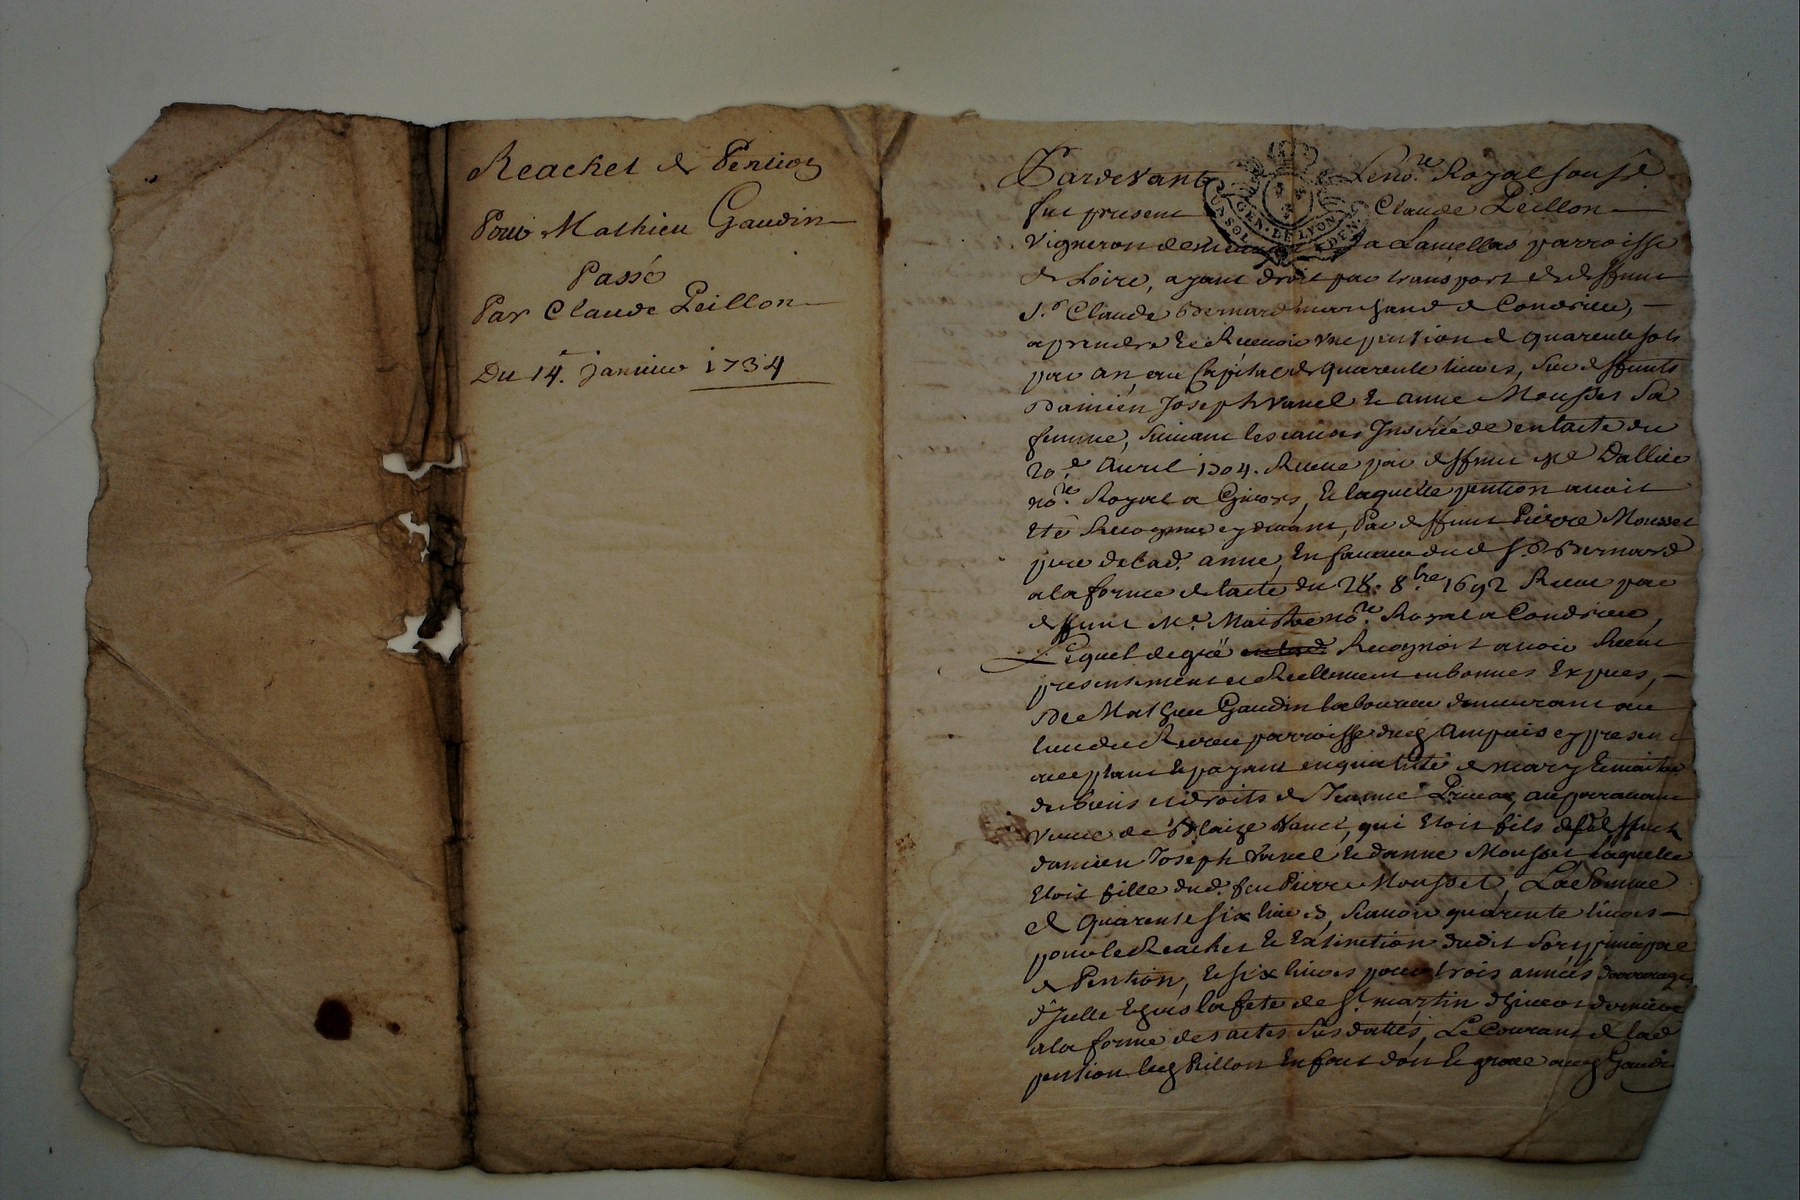 Reachet de Pention
Pour Mathieu Gaudin
Passé
Par Claude Peillon
Du 14.e Janvier 1734
Pardevant Le no.re Royal sousné
fut present Claude Peillon
vigneron demeurant a parroisse
de Loire, ayant droit par transport de deffunt
S.r Claude Bernard marchand de Condrieu,
a prendre et Recevoir une pention de quarente sols
par an, au Capital de quarente livres, sur deffunts
Damien Joseph Vanel et anne Mousset Sa
femme, suivant les causes Inserée de en lacte du
20.e Avril 1704. Receue par deffunt Me Dallier
no.re Royal a Givors, et laquelle pention avoit
été Recognue cydevant, Par deffunt Pierre Mousset
pere de lad. anne, En faveur dud S.r Bernard
a la forme de lacte du 28. 8.bre 1692 Receu par
deffunt M.e Maistre no.re Royal a Condrieu,
Lequel de gré Recognoit avoir Receu
presentement et Reellement en bonnes Especes,
De Mathieu Gaudin laboureur demeurant au
lieu du parroisse dud Ampuis cy present
acceptant et payant en qualité de mary et maitre
des biens et droits de auparavant
veuve de Blaize Vanel, qui etoit fils de deffunt
damien Joseph Vanel et danne Mousset laquelle
etoit fille dud. feu Pierre Mousset, La Somme
de quarente six livres, scavoir quarente livres
pour le Reachet et Extinction dudit sort principal
de Pention, et six livres pour trois années darrerages
d'Icelle Echus la fete de St. martin d'hiver derniere
a la forme des actes susdattés, Le Courant de lad
pention led Peillon En fait don et grace aud Gaudin